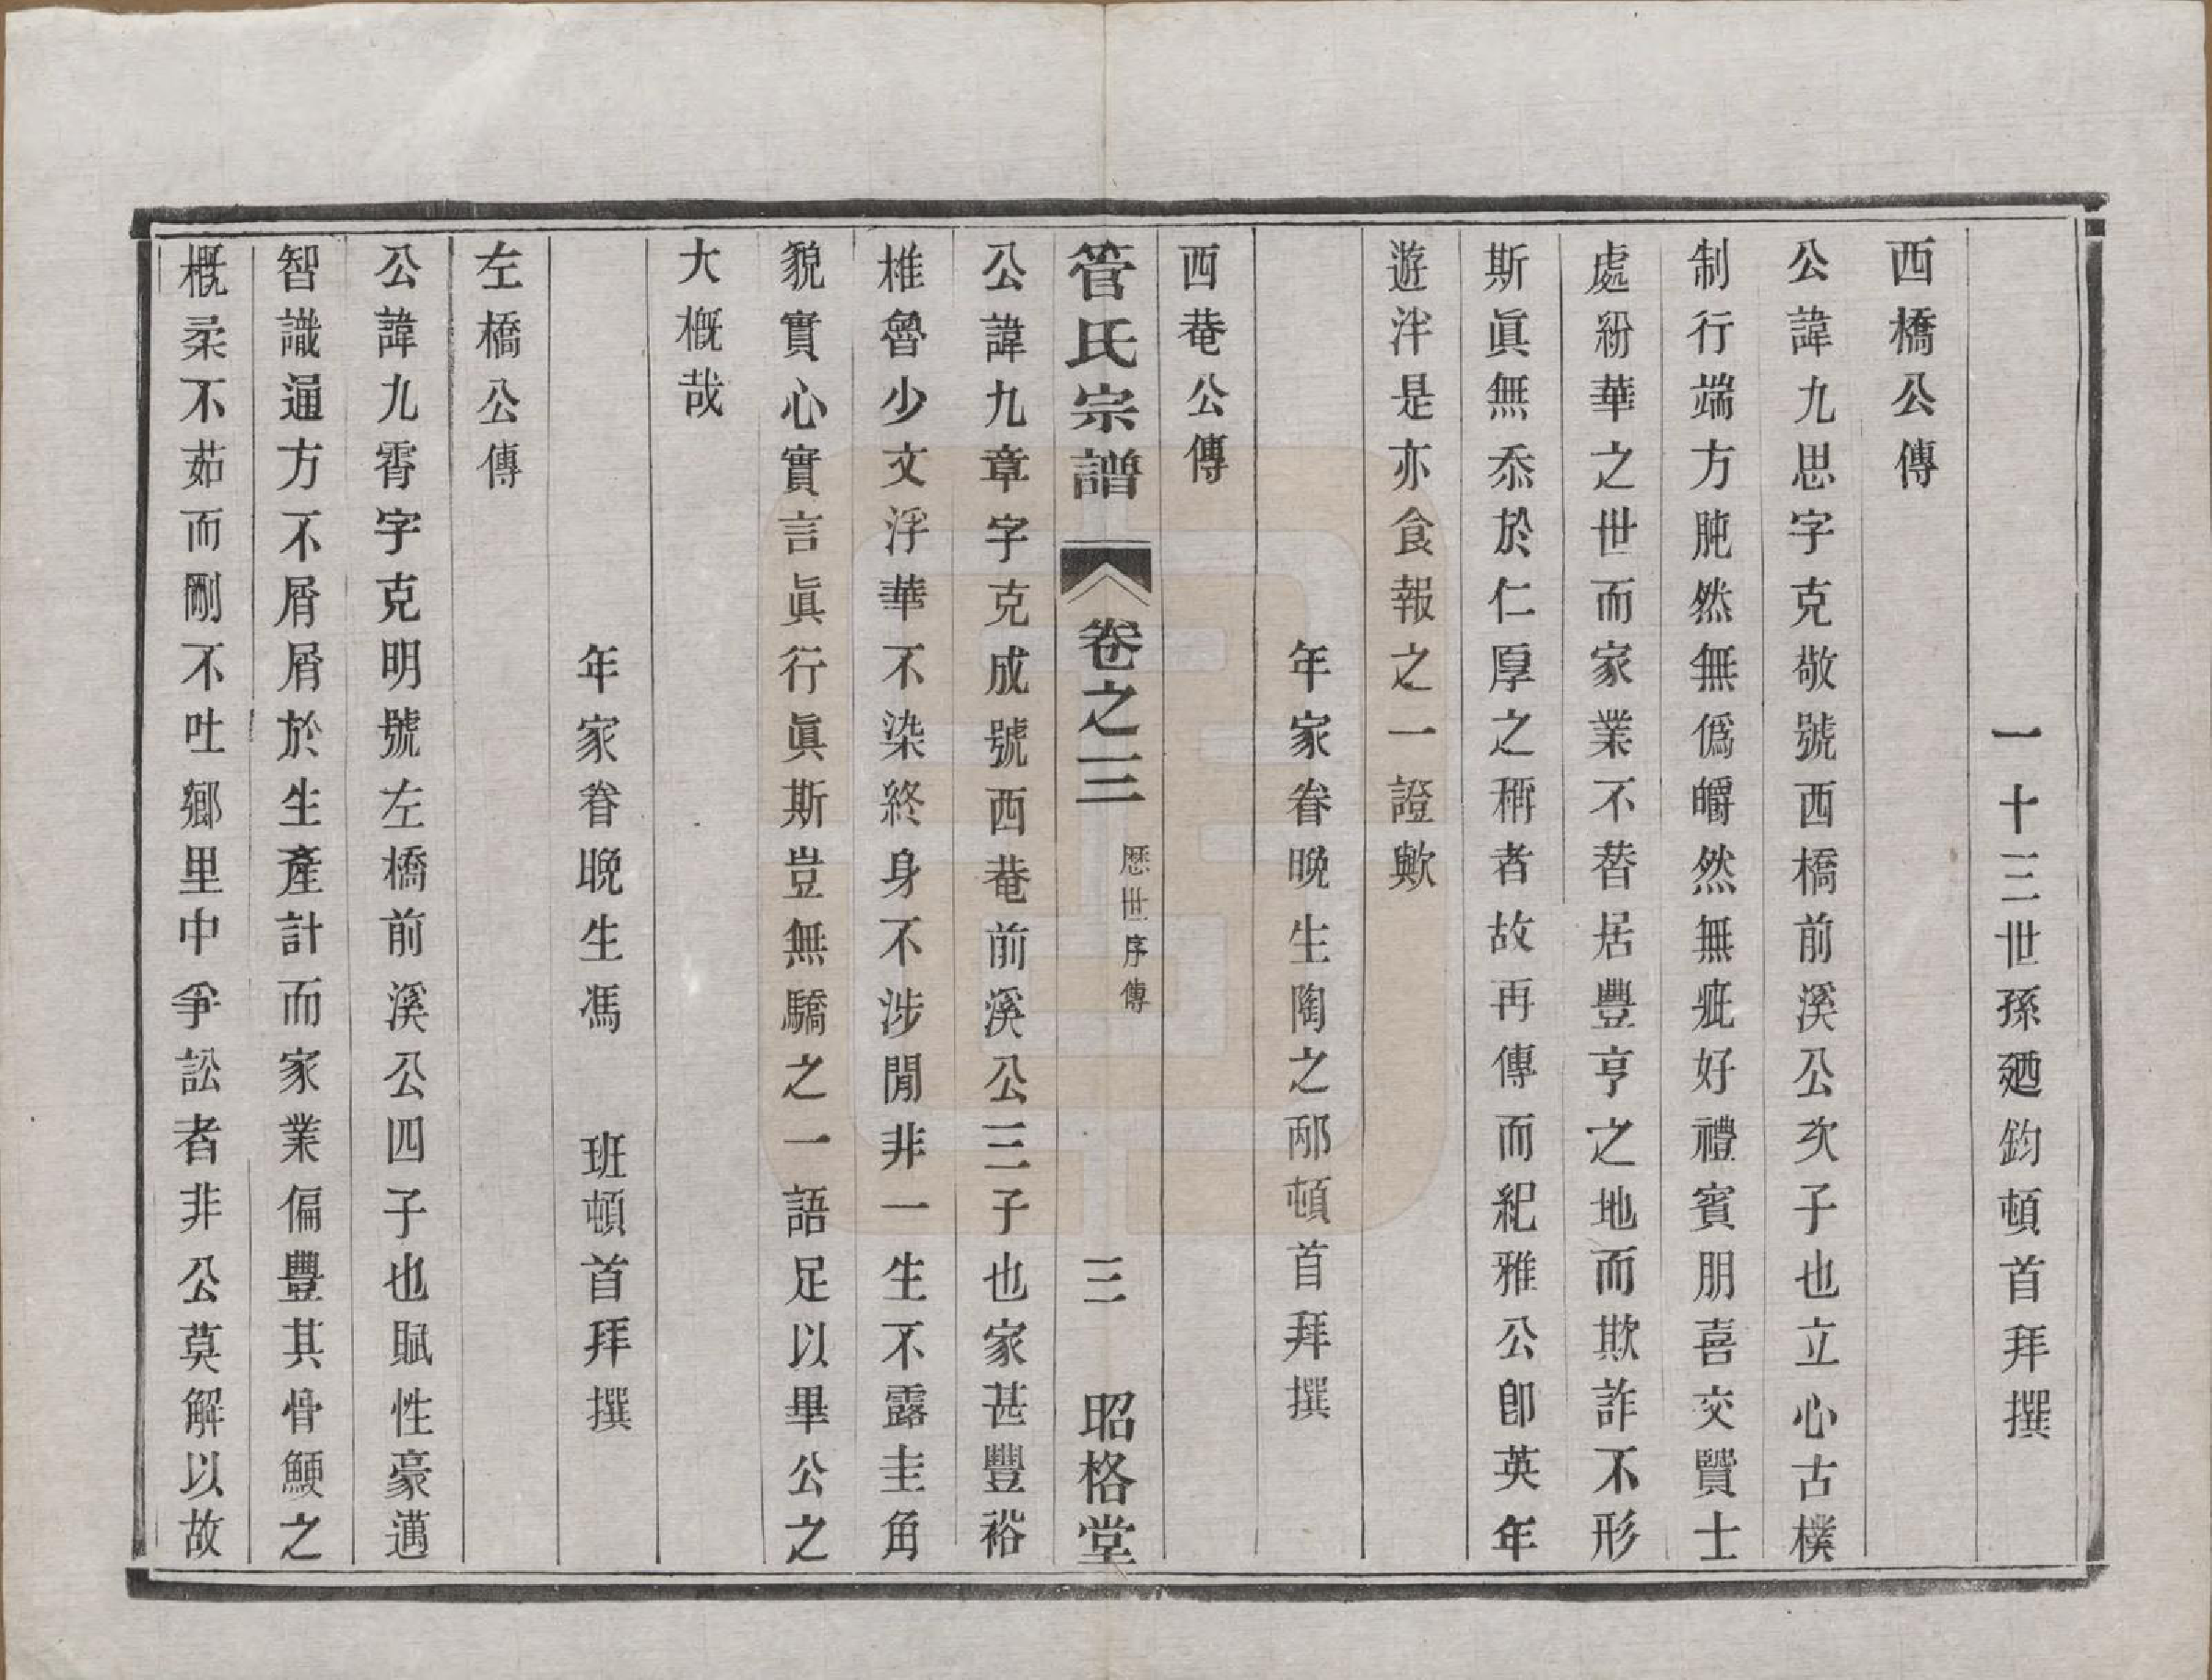 一十三世孫廼鈞頓首拜撰
西橋公傳
公諱九思字克敬號西橋前溪公次子也立心古樸
制行端方肫然無僞皭然無疵好禮賓朋喜交賢士
處紛華之世而家業不替居豐亨之地而欺詐不形
斯眞無忝於仁厚之稱者故再傳而紀雅公卽英年
遊泮是亦食報之一證歟
年家眷晚生陶之邴頓首拜撰
西菴公傳
管氏宗譜 卷之三 歷世序傳 三 昭格堂
公諱九章字克成號西菴前溪公三子也家甚豐裕
椎魯少文浮華不染終身不涉閒非一生不露圭角
貌實心實言眞行眞斯豈無驕之一語足以畢公之
大槪哉
年家眷晚生馮 班頓首拜撰
左橋公傳
公諱九霄字克明號左橋前溪公四子也賦性豪邁
智識通方不屑屑於生產計而家業偏豐其骨鯁之
槪柔不茹而剛不吐鄉里中爭訟者非公莫解以故